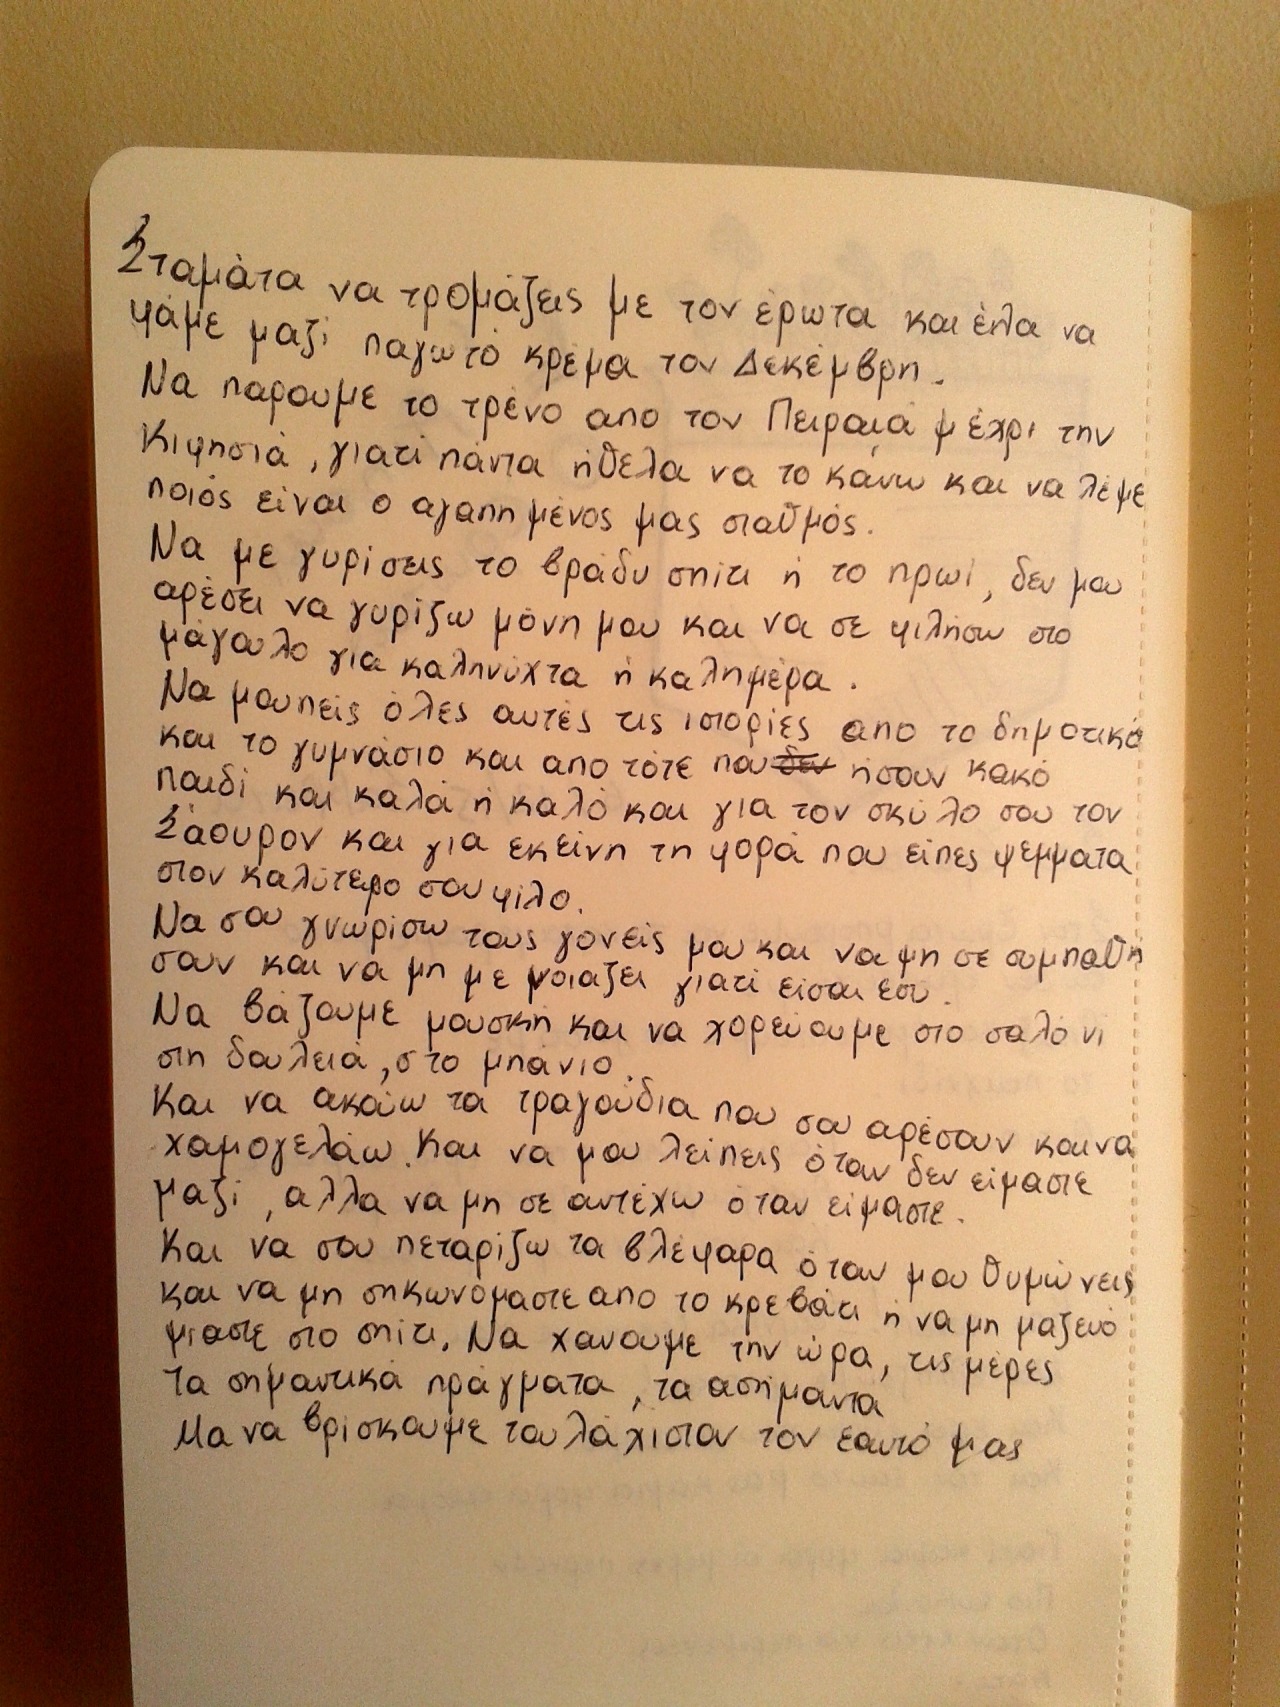 Σταμάτα να τρομάζεις με τον έρωτα και έλα να
φάμε μαζί παγωτό κρέμα τον Δεκέμβρη.
Να παρουμε το τρένο απο τον Πειραιά μέχρι την
Κιφησιά, γιατί πάντα ήθελα να το κάνω και να λέμε
ποιός είναι ο αγαπημένος μας σταθμός.
Να με γυρίσεις το βράδυ σπίτι ή το πρωί, δεν μου
αρέσει να γυρίζω μόνη μου και να σε φιλήσω στο
μάγουλο για καληνύχτα ή καλημέρα.
Να μου πείς όλες αυτές τις ιστορίες απο το δημοτικό
και το γυμνάσιο και απο τότε που δεν ήσουν κακό
παιδί και καλά ή καλό και για τον σκύλο σου τον
Σάουρον και για εκείνη τη φορά που είπες ψεμματα
στον καλύτερο σου φίλο.
Να σου γνωρίσω τους γονείς μου και να μη σε συμπαθή
σουν και να μη με νοιαζει γιατί είσαι εσύ.
Να βάζουμε μουσκή και να χορεύουμε στο σαλόνι
στη δουλειά, στο μπάνιο.
Και να ακούω τα τραγούδια που σου αρέσουν και να
χαμογελάω. Και να μου λείπεις όταν δεν είμαστε
μαζί, αλλα να μη σε αντέχω όταν είμαστε.
Και να σου πεταρίζω τα βλέφαρα όταν μου θυμώνεις
και να μη σηκωνόμαστε απο το κρεβάτι ή να μη μαζευό
μιαστε στο σπίτι. Να χανουμε την ώρα, τις μέρες
τα σημαντικά πράγματα, τα ασήμαντα
Μα να βρίσκουμε τουλάχιστον τον εαυτό μας